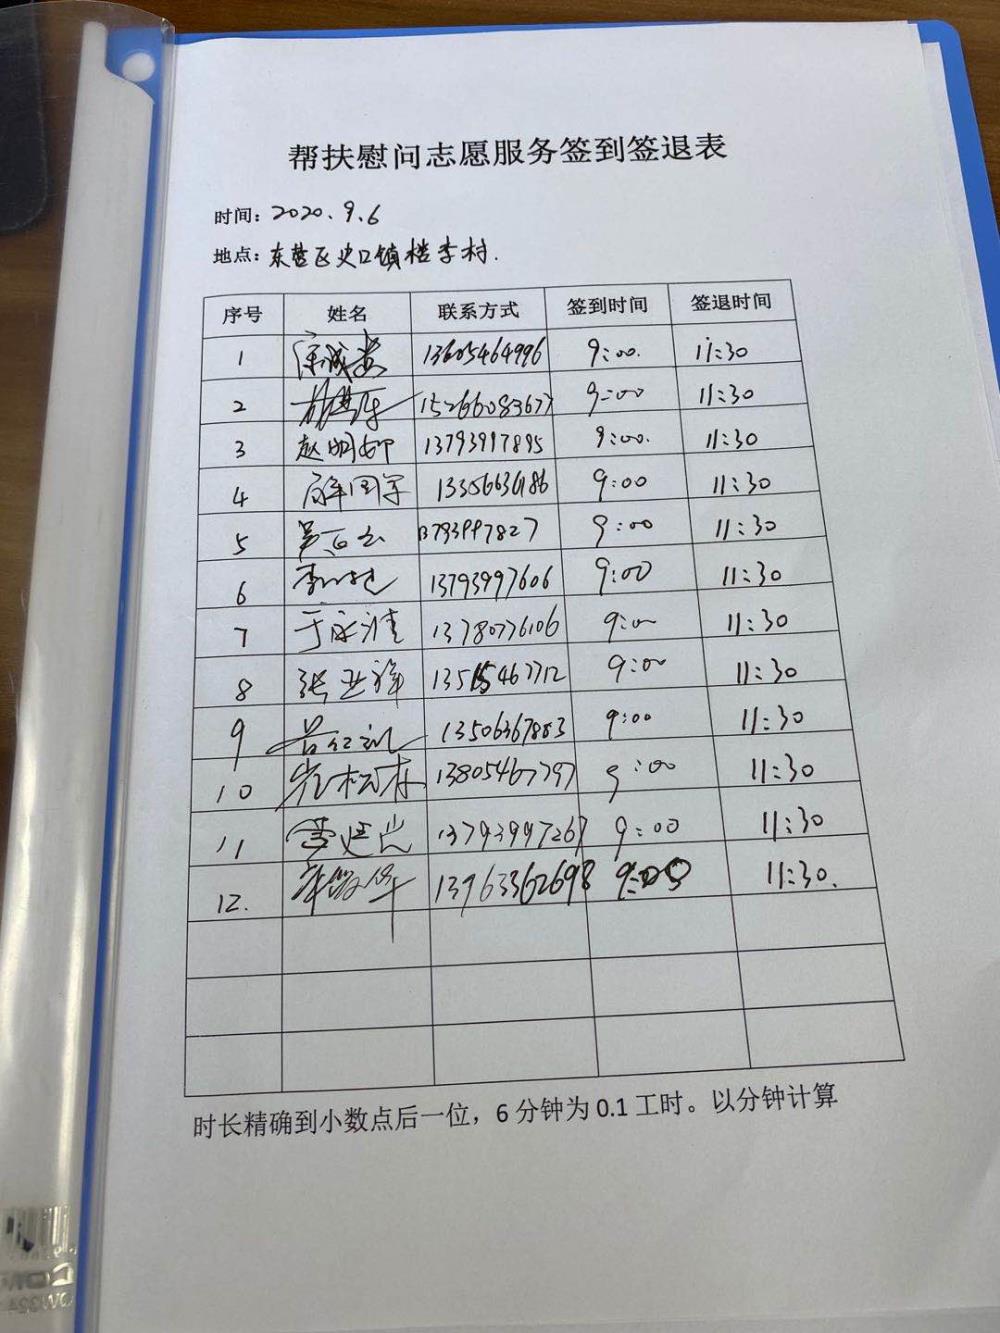 帮扶慰问志愿服务签到签退表
时间：2020.9.6
地点：东营区史口镇楼李村.
序号 姓名 联系方式 签到时间 签退时间
1 13605464996 9:00. 11:30
2 15266083677 9:00 11:30
3 赵明 13793997895 9:00. 11:30
4 9:00 11:30
5 13793997827 9:00 11:30
6 13793997606 9:00 11:30
7 于永清 13780776106 9:00 11:30
8 张亚锋 9:00 11:30
9 13506367883 9:00 11:30
10 崔松 13805467797 9:00 11:30
11 13793997267 9:00 11:30
12. 13963362698 9:00 11:30.
时长精确到小数点后一位，6 分钟为 0.1 工时。以分钟计算